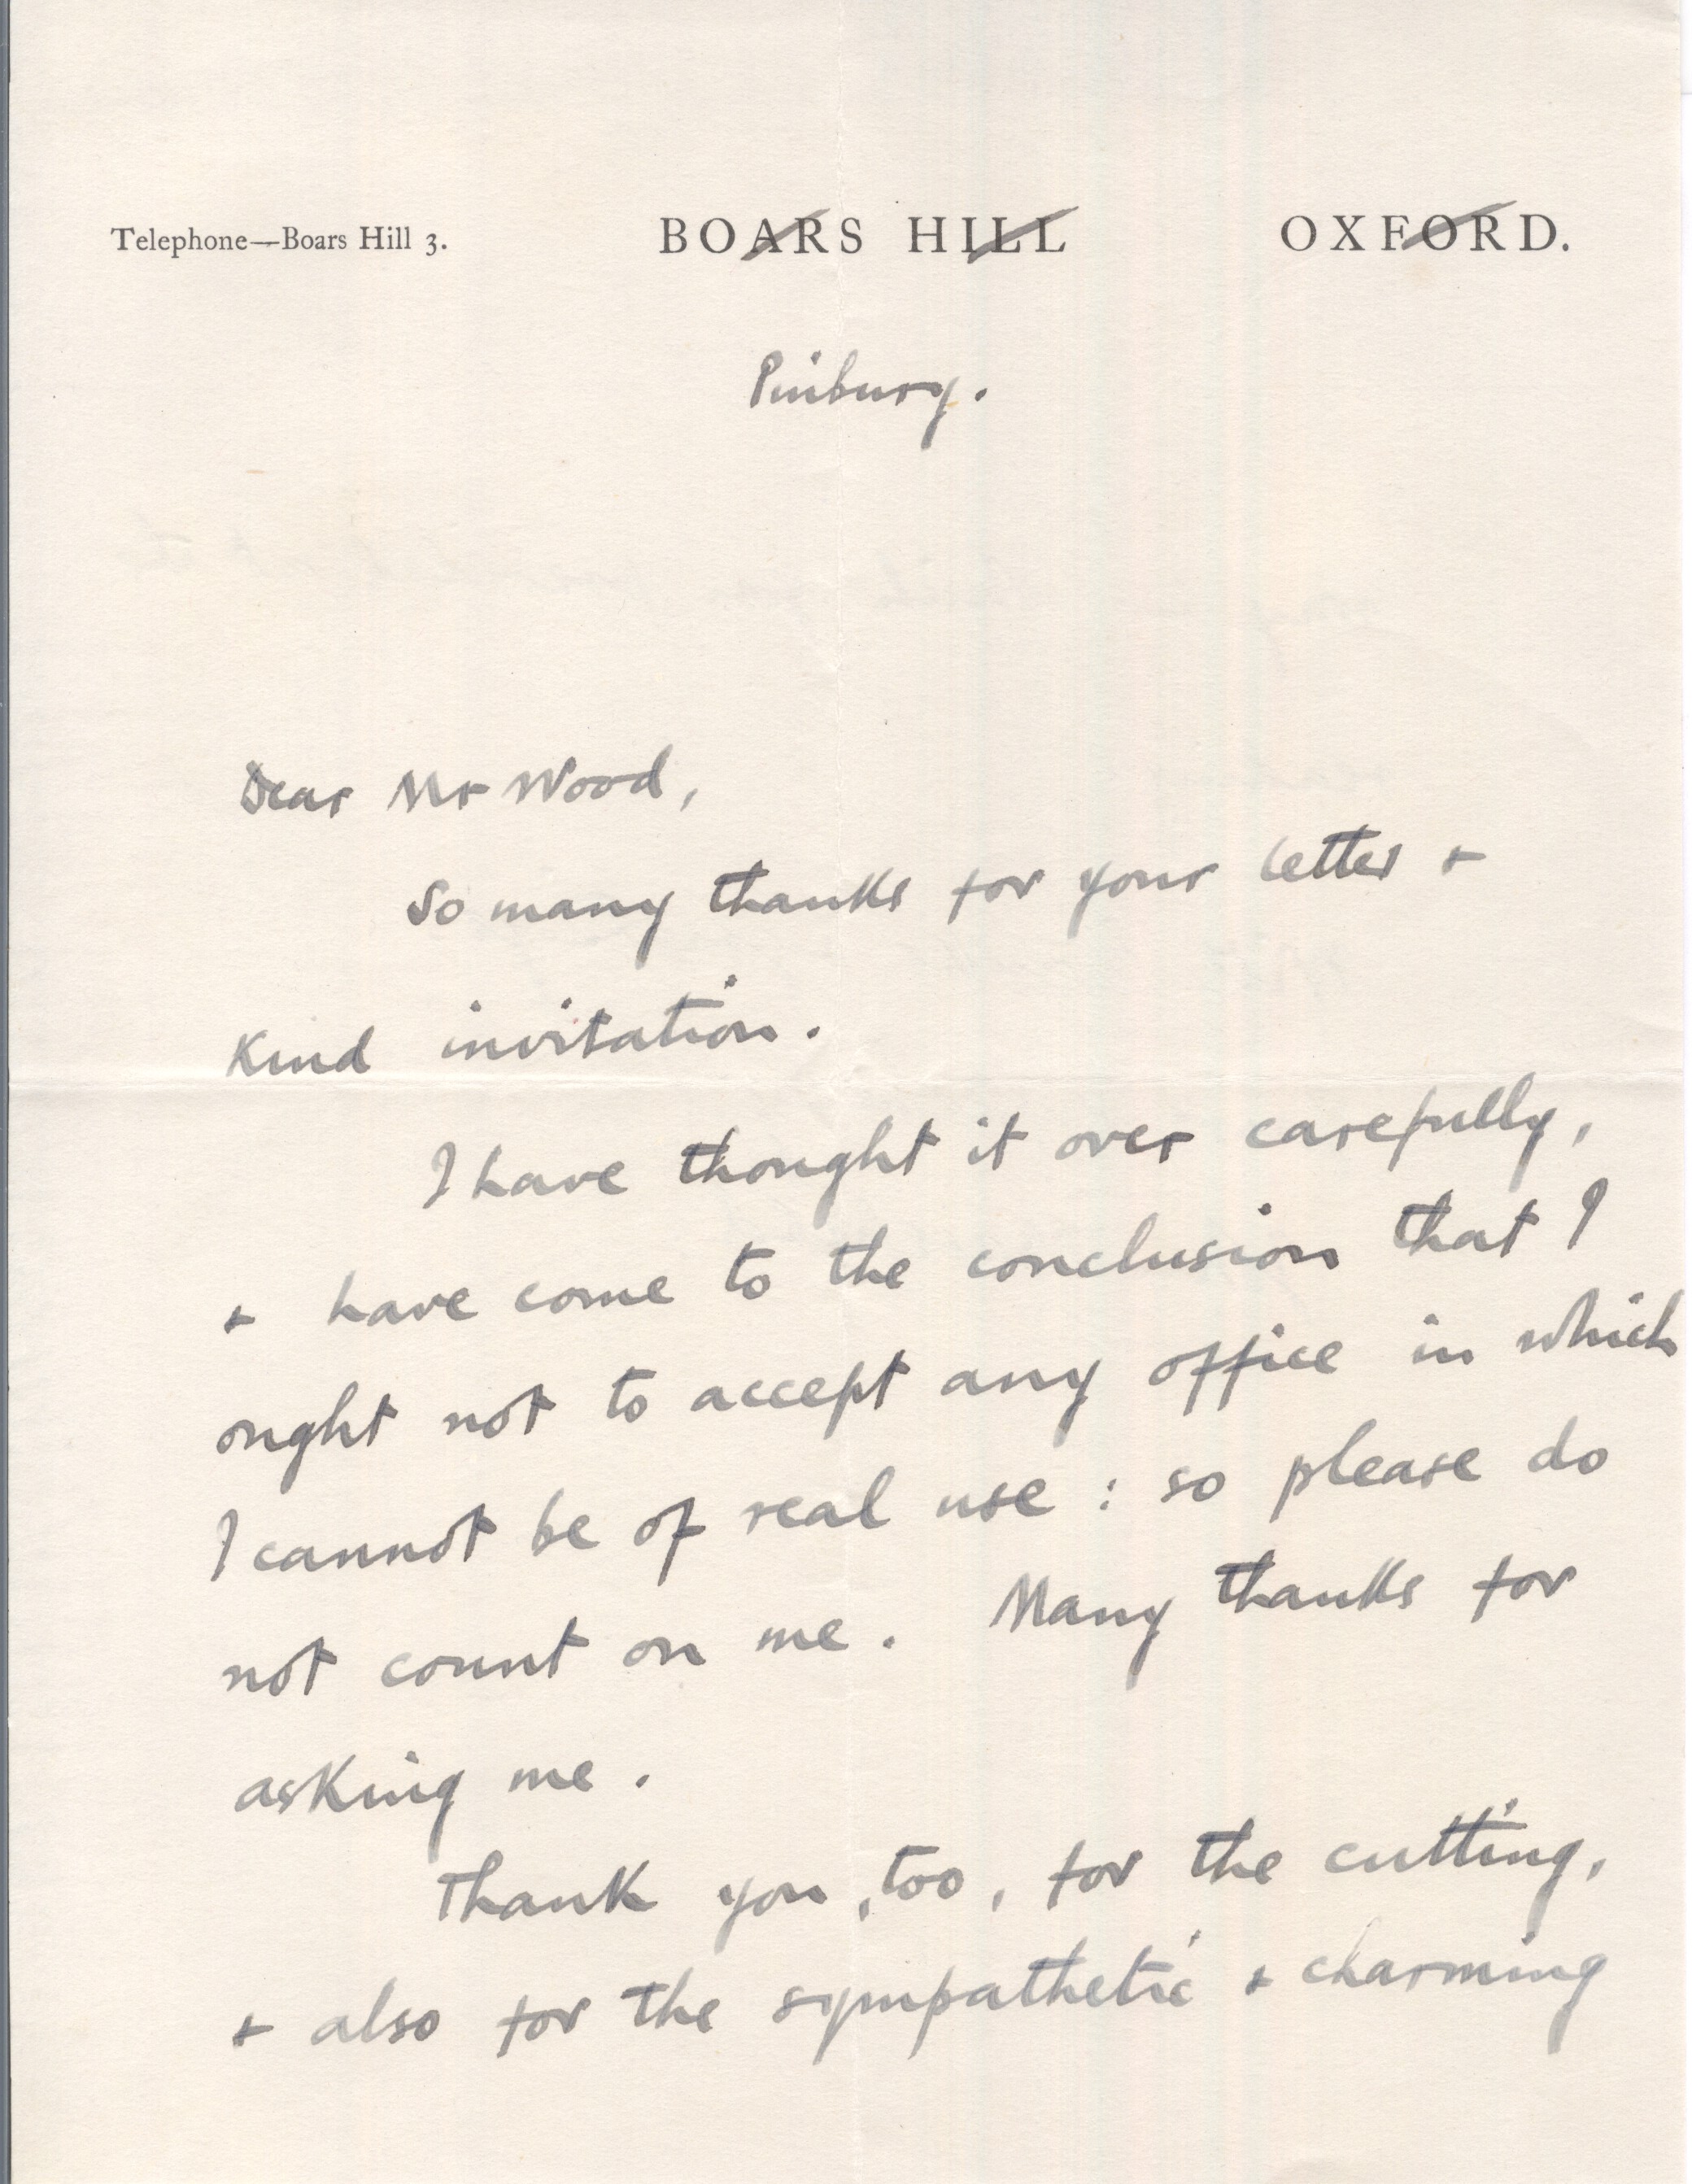 Telephone—Boars Hill 3. BOARS HILL OXFORD.
Pinbury.
Dear Mr Wood,
So many thanks for your letter +
kind invitation.
I have thought it over carefully,
+ have come to the conclusion that I
ought not to accept any office in which
I cannot be of real use : so please do
not count on me. Many thanks for
asking me.
Thank you, too, for the cutting,
+ also for the sympathetic + charming